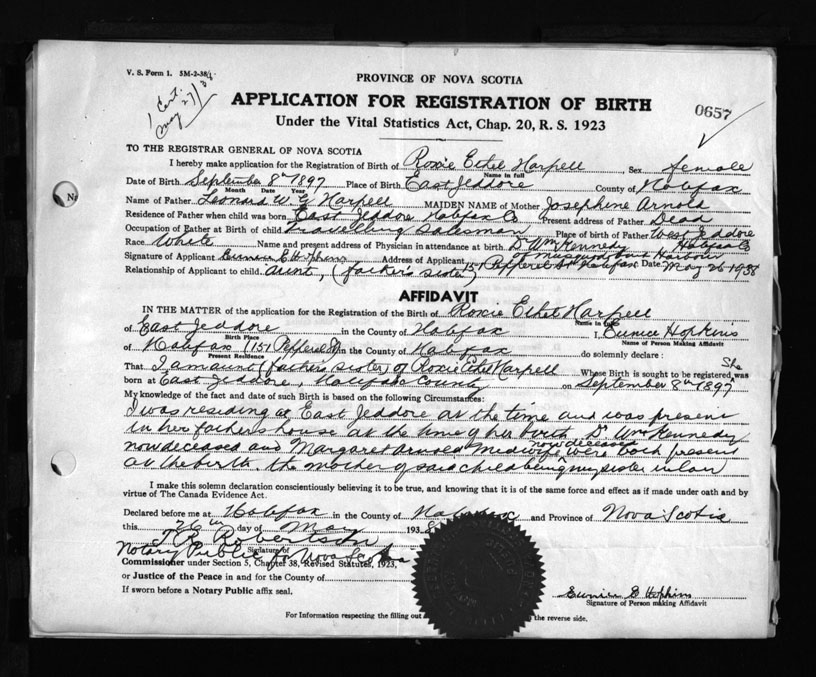 V. S. Form 1. 5M-2-38
PROVINCE OF NOVA SCOTIA
1 Cert.
May 27/38
APPLICATION FOR REGISTRATION OF BIRTH
0657
Under the Vital Statistics Act, Chap. 20, R. S. 1923
TO THE REGISTRAR GENERAL OF NOVA SCOTIA
I hereby make application for the Registration of Birth of Roxie Ethel Harpell Sex female
Name in full
Date of Birth September 8th 1897 Place of Birth East Jeddore County of Halifax
Month Date Year
Name of Father Leonard W. G. Harpell MAIDEN NAME of Mother Josephine Arnold
Residence of Father when child was born East Jeddore Halifax Co Present address of Father Dead
Occupation of Father at Birth of child travelling salesman Place of birth of Father West Jeddore
Race White Name and present address of Physician in attendance at birth Dr Wm Kennedy Halifax Co
of Musquodoboit Harbour
Signature of Applicant Eunice E Hopkins Address of Applicant 151 Pepperel St Halifax Date May 26 1938
Relationship of Applicant to child aunt, (father's sister)
AFFIDAVIT
IN THE MATTER of the application for the Registration of the Birth of Roxie Ethel Harpell
Name in full
of East Jeddore in the County of Halifax I, Eunice Hopkins
Birth Place Name of Person Making Affidavit
of Halifax (151 Pepperel St) in the County of Halifax do solemnly declare :
Present Residence
She
That I am aunt (father's sister) of Roxie Ethel Harpell Whose Birth is sought to be registered was
born at East Jeddore, Halifax County on September 8th 1897
My knowledge of the fact and date of such Birth is based on the following Circumstances:
I was residing at East Jeddore at the time and was present
in her father's house at the time of her birth Dr Wm Kennedy
now deceased
now deceased and Margaret Arnold Midwife were both present
at the birth. The mother of said child being my sister in law
I make this solemn declaration conscientiously believing it to be true, and knowing that it is of the same force and effect as if made under oath and by
virtue of The Canada Evidence Act.
Declared before me at Halifax in the County of Halifax and Province of Nova Scotia
this 26th day of May 1938
T. R. Robertson
Signature of
Notary Public for Nova Scotia
Commissioner under Section 5, Chapter 38, Revised Statutes, 1923,
or Justice of the Peace in and for the County of
If sworn before a Notary Public affix seal.
Eunice E Hopkins
Signature of Person making Affidavit
For Information respecting the filling out the reverse side.